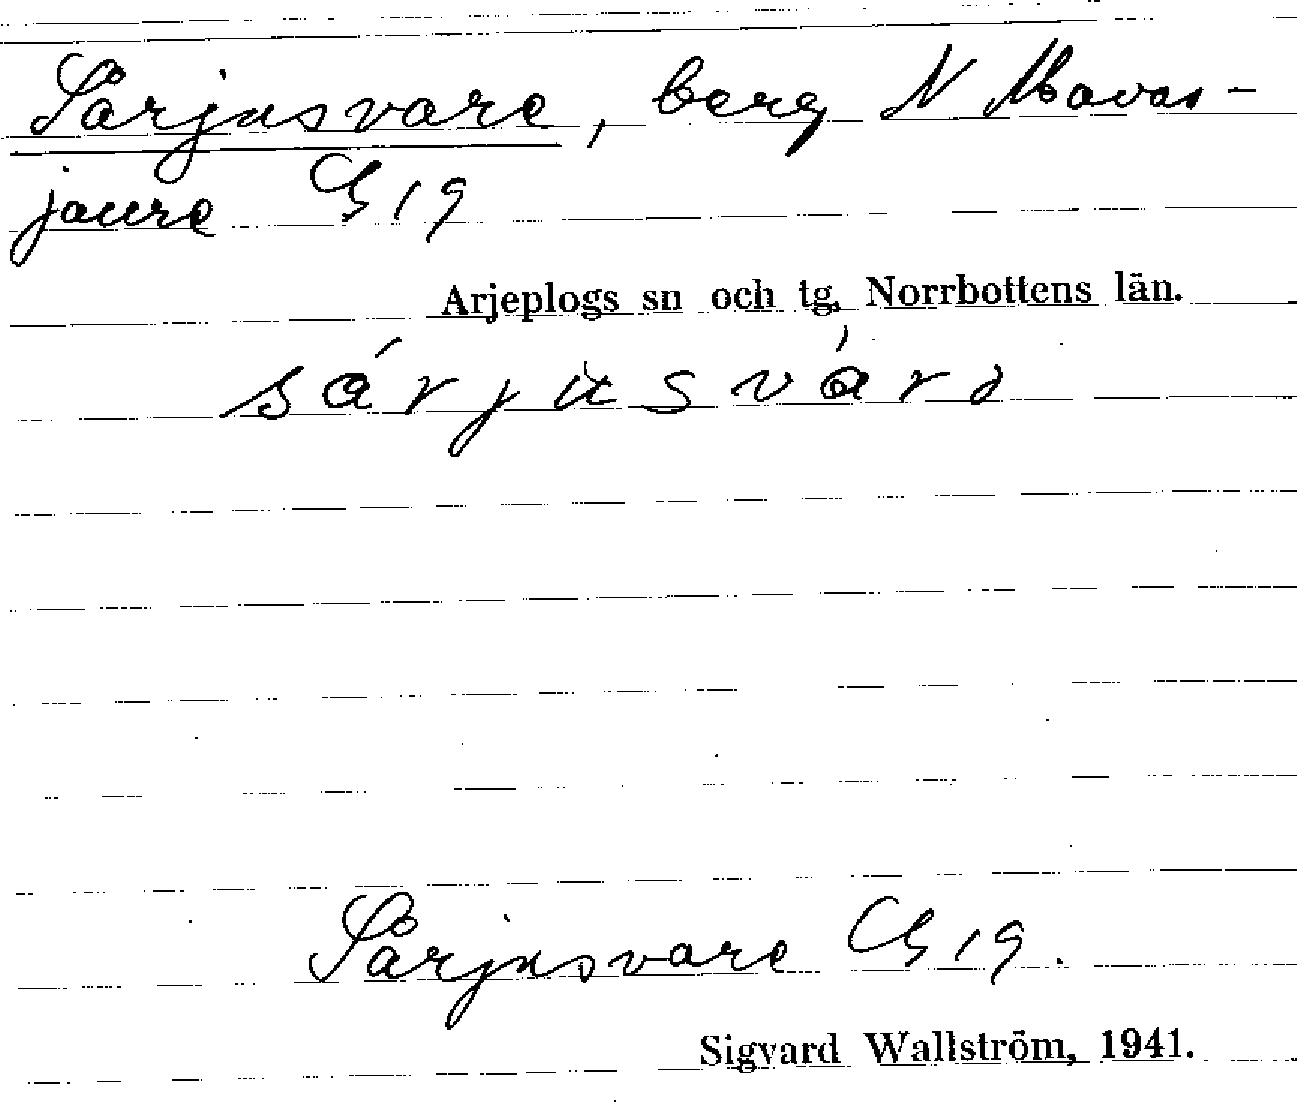 Sårjusvare, berg N Mavas-
jaure G 19
Arjeplogs sn och tg, Norrbottens län.
Sårjusvare G 19.
Sigvard Wallström, 1941.